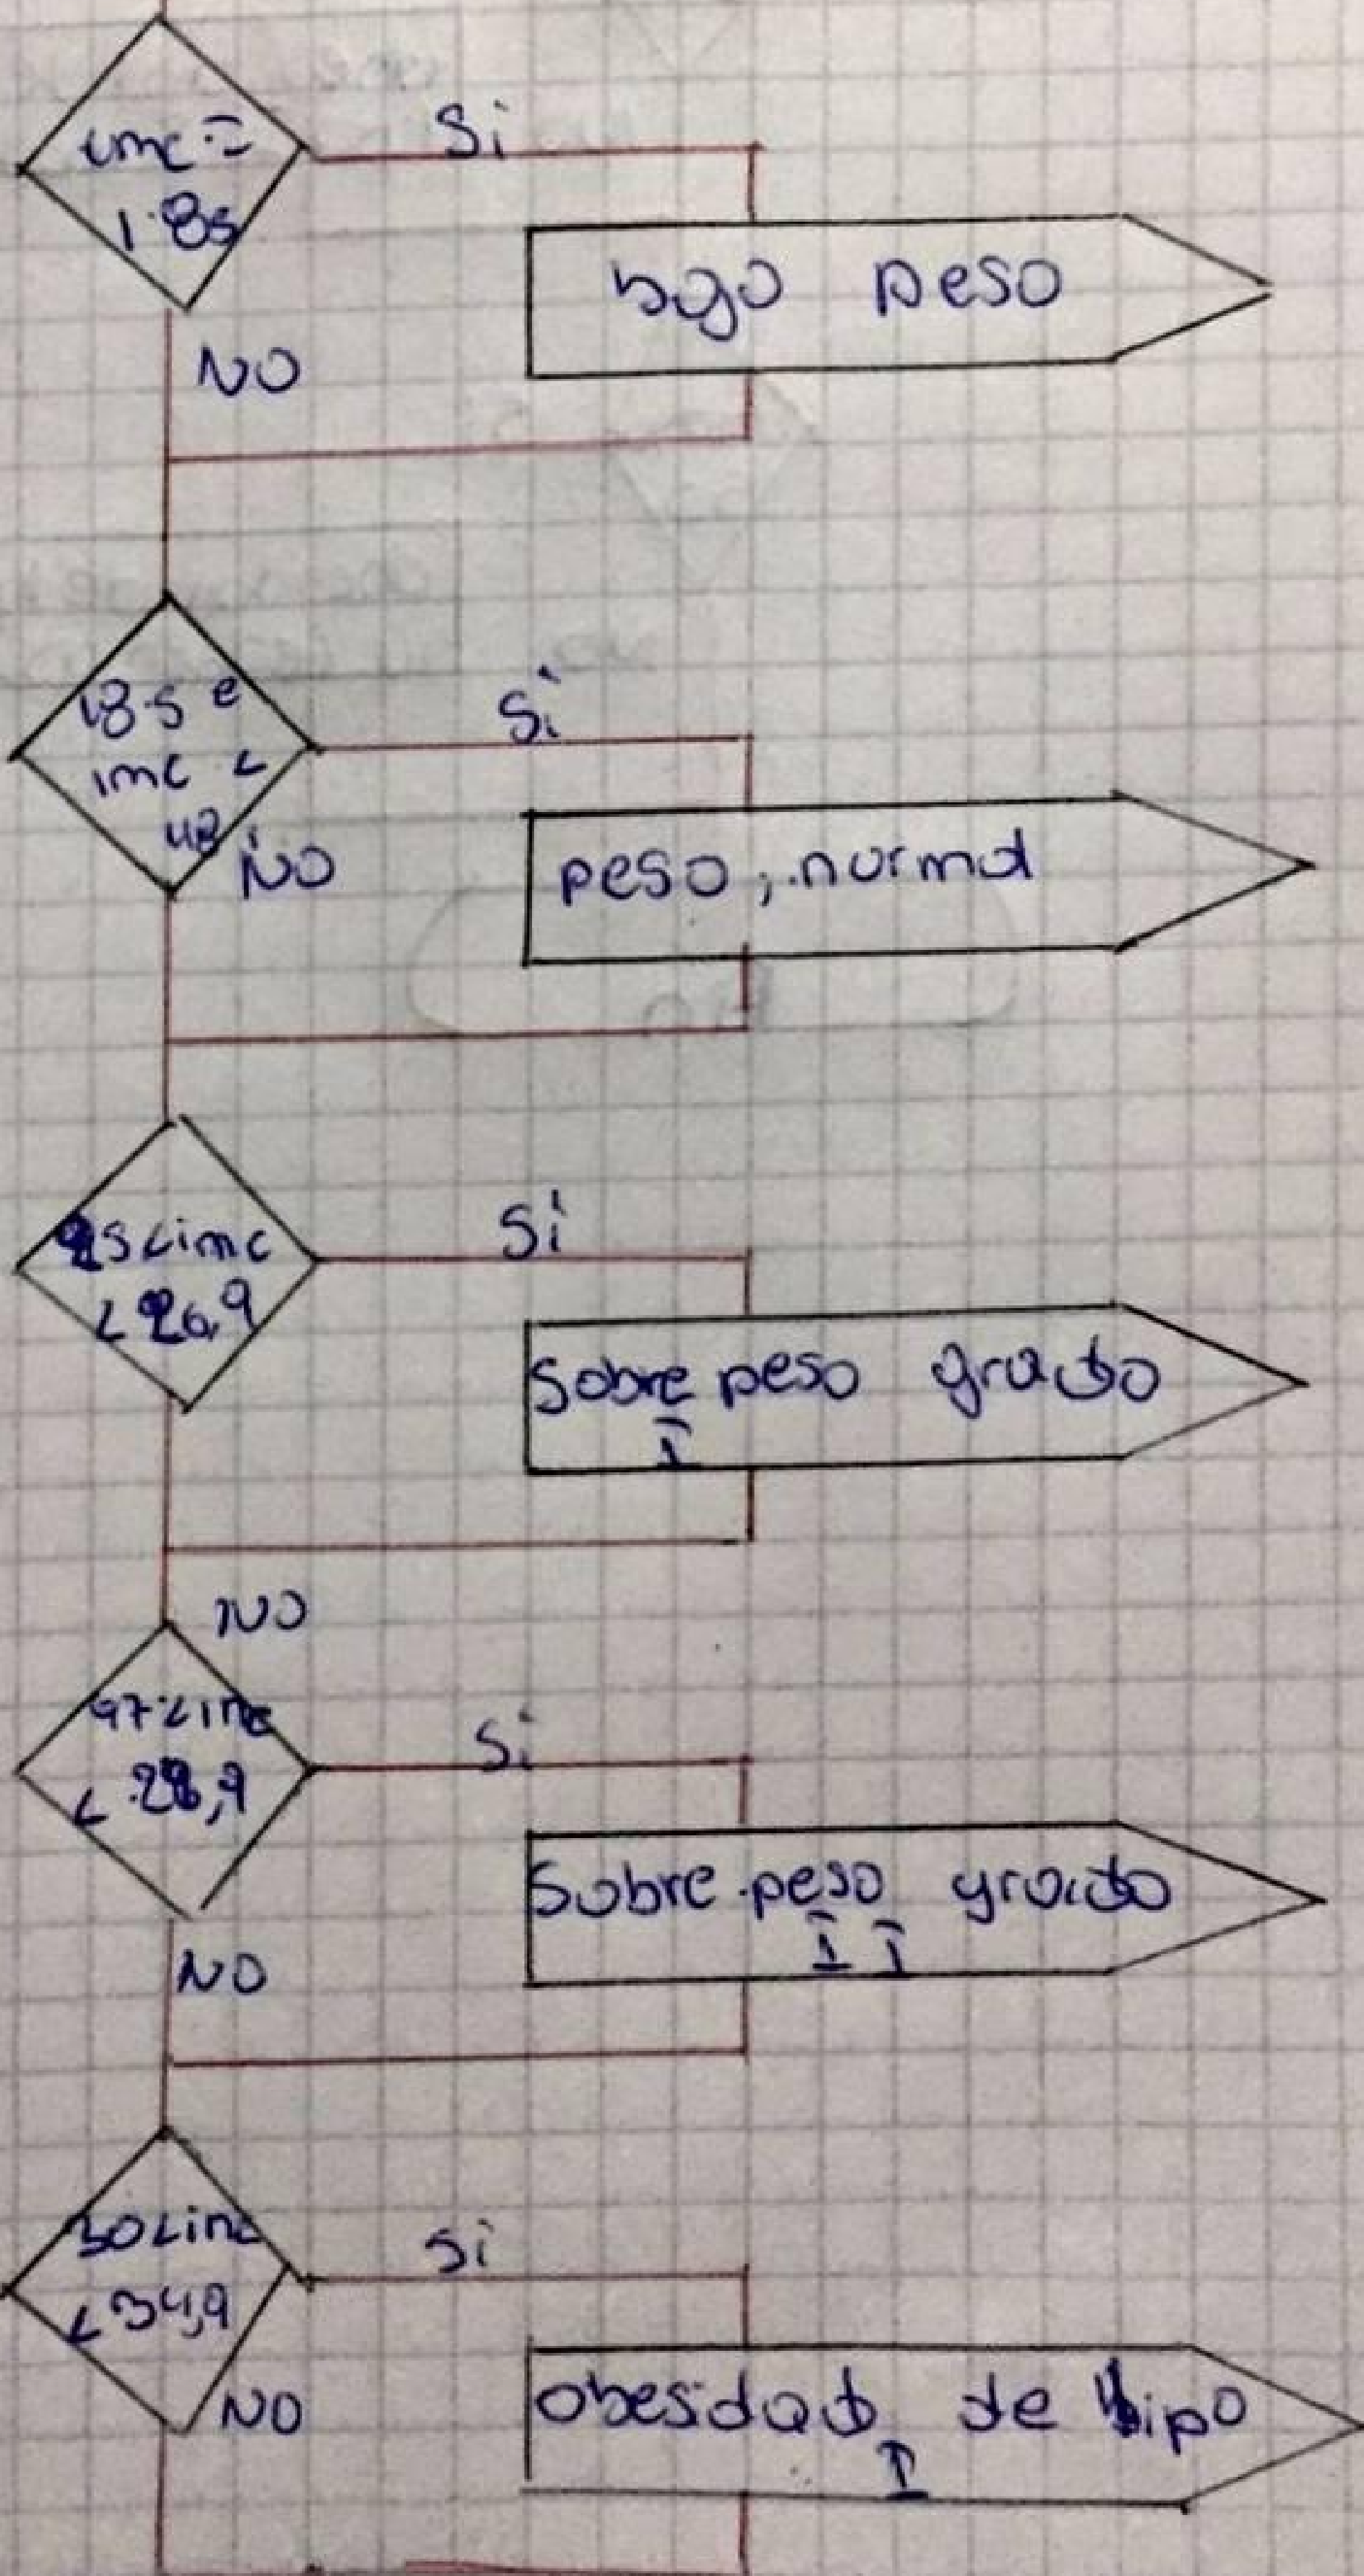 imc =
1.85
Si
bajo peso
NO
18.5 e
imc <
Si
NO
peso, normal
25<imc
<26,9
Si
Sobre peso grado
I
NO
27<imc
<28,9
Si
Sobre peso grado
II
NO
30<imc
<34,9
Si
NO
obesidad de tipo
I